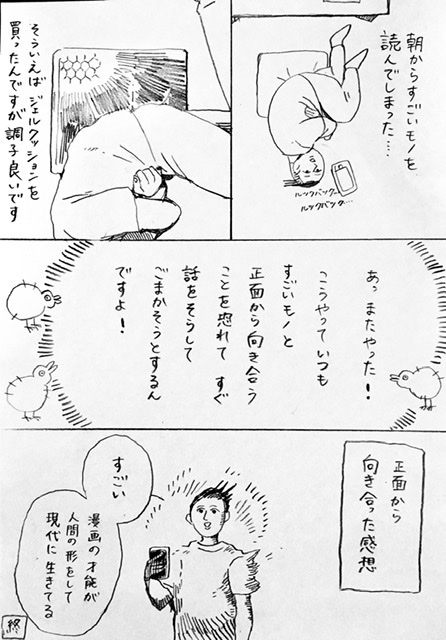 朝からすごいモノを
読んでしまった…
ルックバック…
ルックバック…
そういえば ジェルクッションを
買ったんですが 調子良いです
あっ またやった!
こうやって いつも
すごいモノと
正面から向き合う
ことを恐れて すぐ
話をそらして
ごまかそうとするん
ですよ!
正面から
向き合った感想
すごい
漫画の才能が
人間の形をして
現代に 生きてる
終